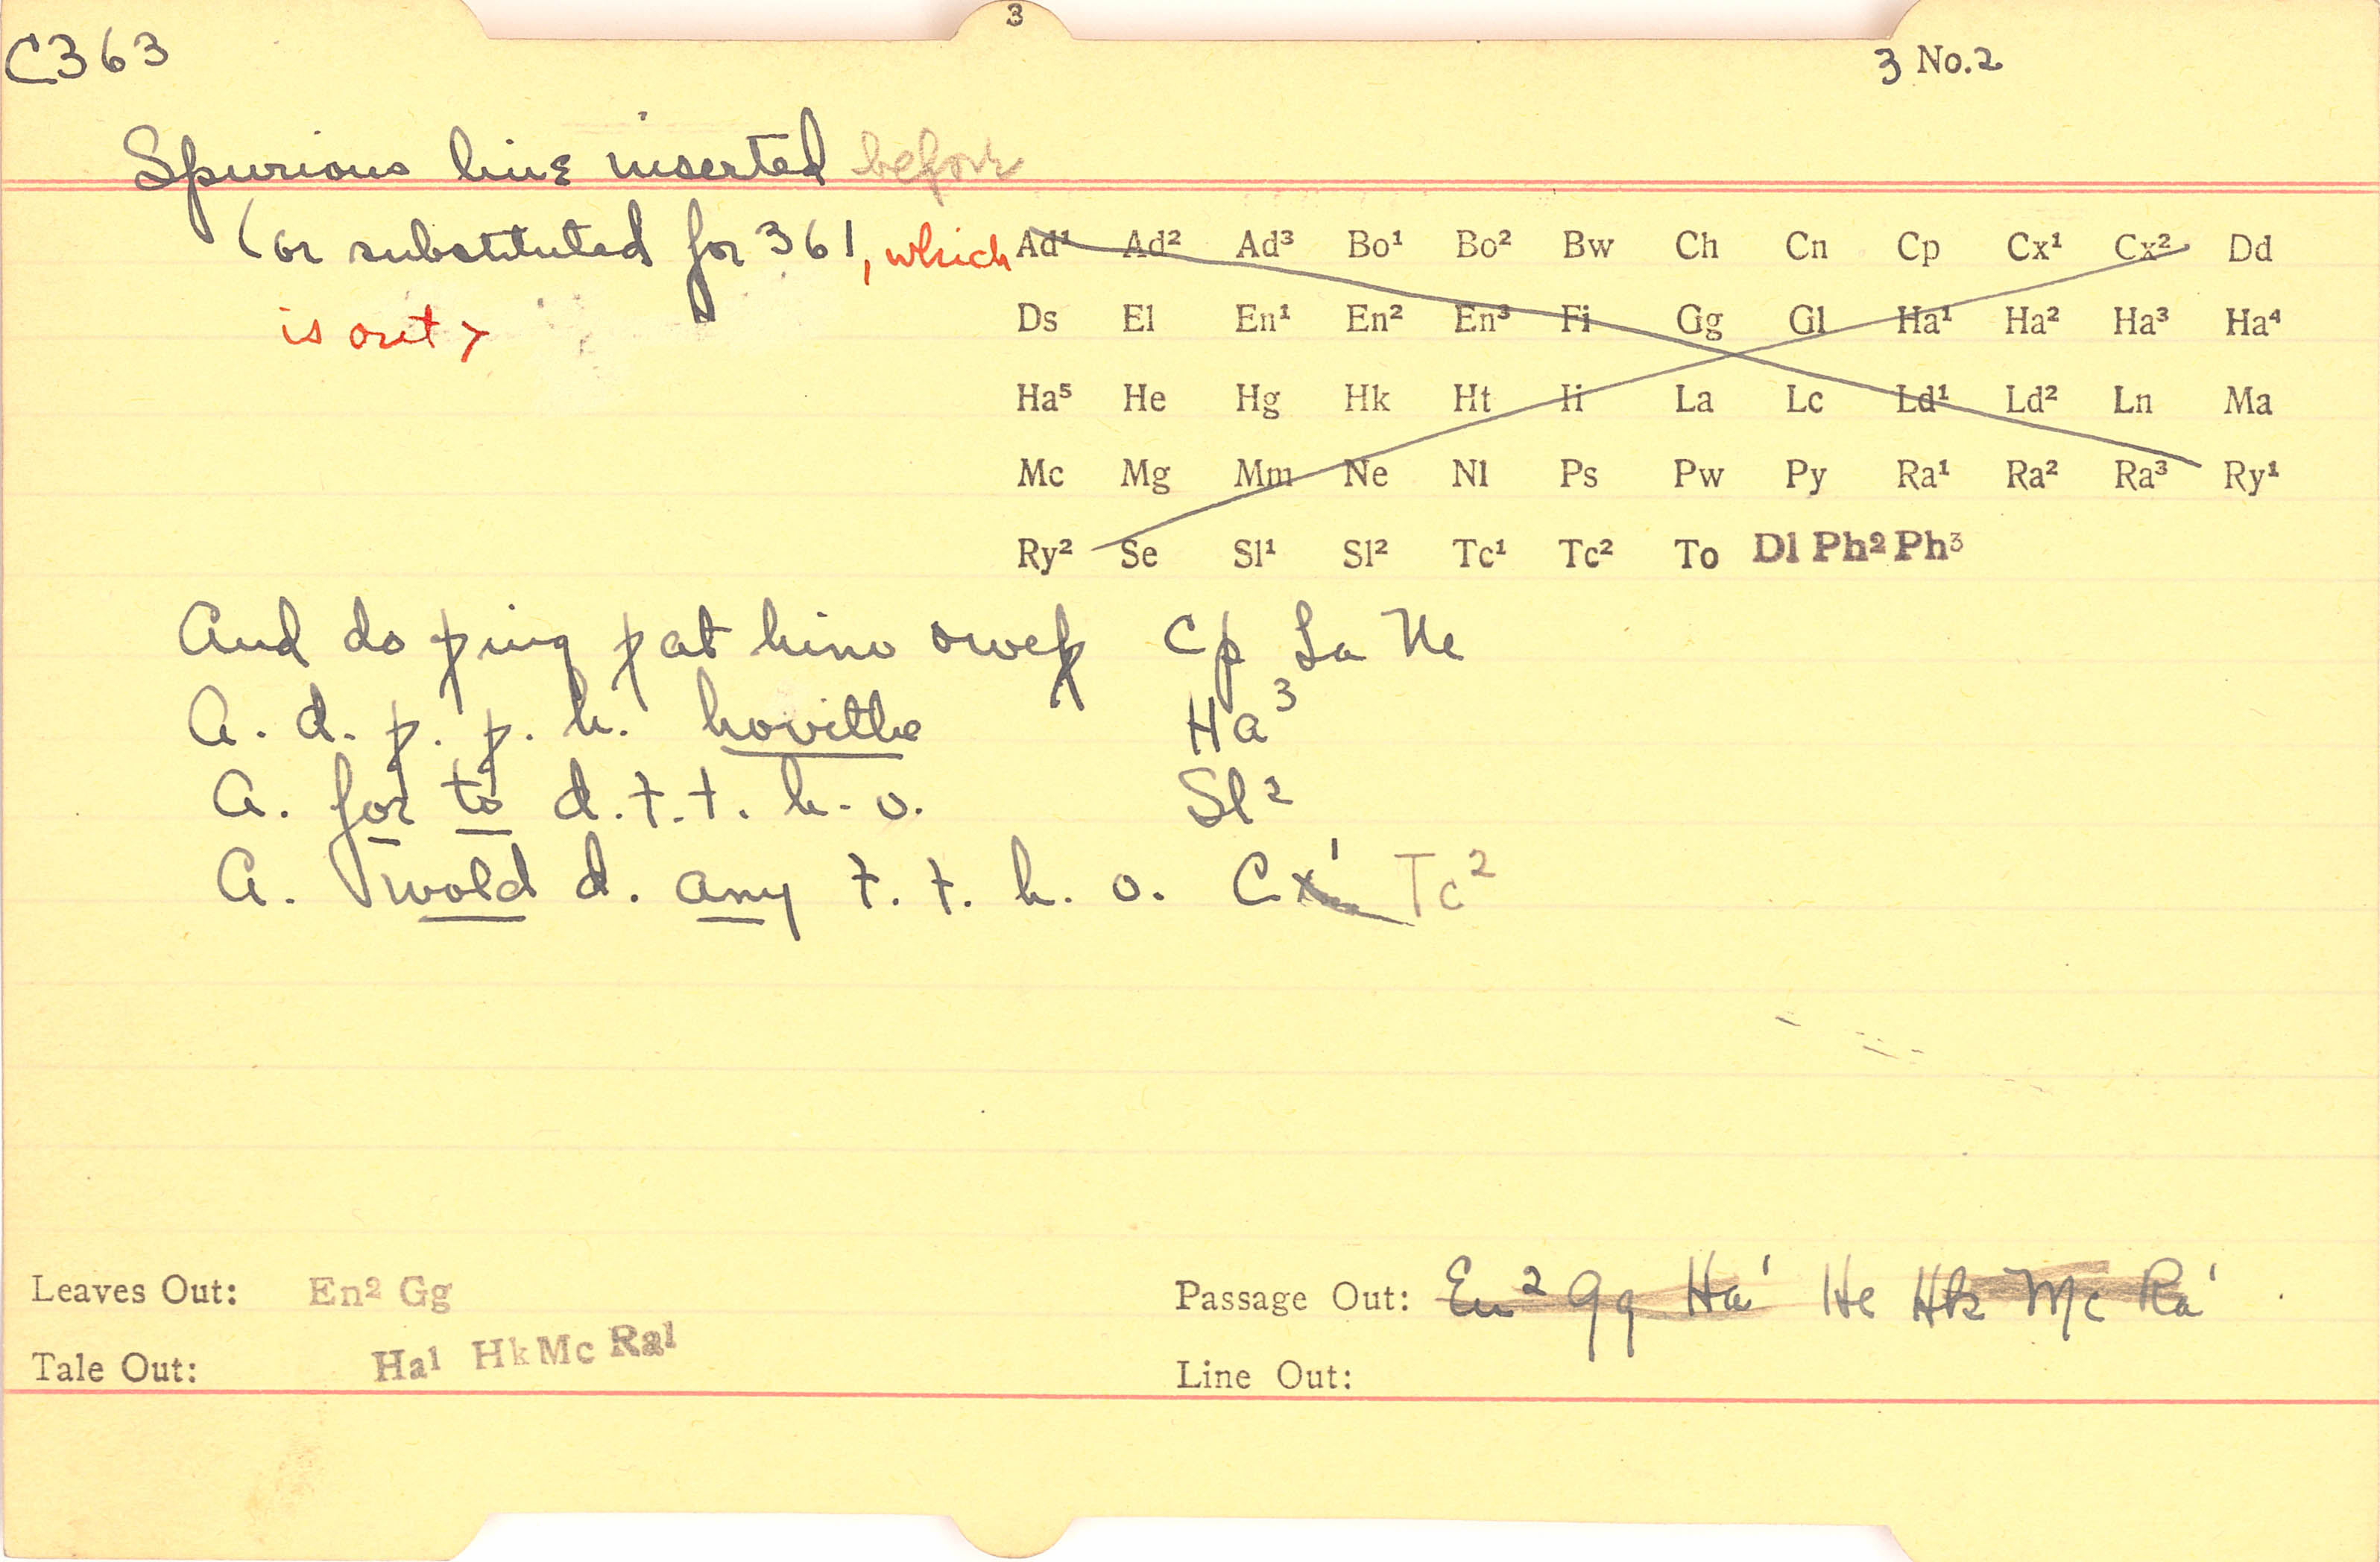 3
C363
3 No.2
Spurious line inserted before
(or substituted for 361, which
is out)
Ad¹ Ad² Ad³ Bo¹ Bo² Bw Ch Cn Cp Cx¹ Cx² Dd
Ds El En¹ En² En³ Fi Gg Gl Ha¹ Ha² Ha³ Ha⁴
Ha⁵ He Hg Hk Ht Ii La Lc Ld¹ Ld² Ln Ma
Mc Mg Mm Ne Nl Ps Pw Py Ra¹ Ra² Ra³ Ry¹
Ry² Se Sl¹ Sl² Tc¹ Tc² To Dl Ph² Ph³
And do þing þat him oweþ Cp La Ne
A. d. þ. þ. h. hovithe Ha³
A. for to d. t. t. h. o. Sl²
A. wold d. any t. t. h. o. Cx¹ Tc²
Leaves Out: En² Gg
Passage Out: En² Gg Ha¹ He Hk Mc Ra¹
Ha¹ Hk Mc Ra¹
Tale Out:
Line Out: